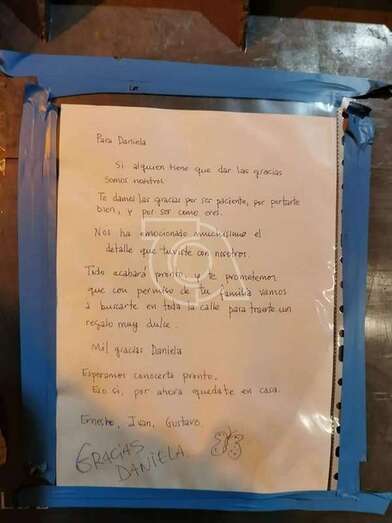 Para Daniela
Si alguien tiene que dar las gracias
somos nosotros
Te damos las gracias por ser paciente, por portarte
bien, y por ser como eres.
Nos ha emocionado muchísimo el
detalle que tuviste con nosotros.
Todo acabará pronto, y te prometemos
que con permiso de tu familia vamos
a buscarte en toda la calle para traerte un
regalo muy dulce.
Mil gracias Daniela
Esperamos conocerte pronto.
Eso si, por ahora quedate en casa.
Ernesto, Ivan, Gustavo.
GRACIAS
DANIELA